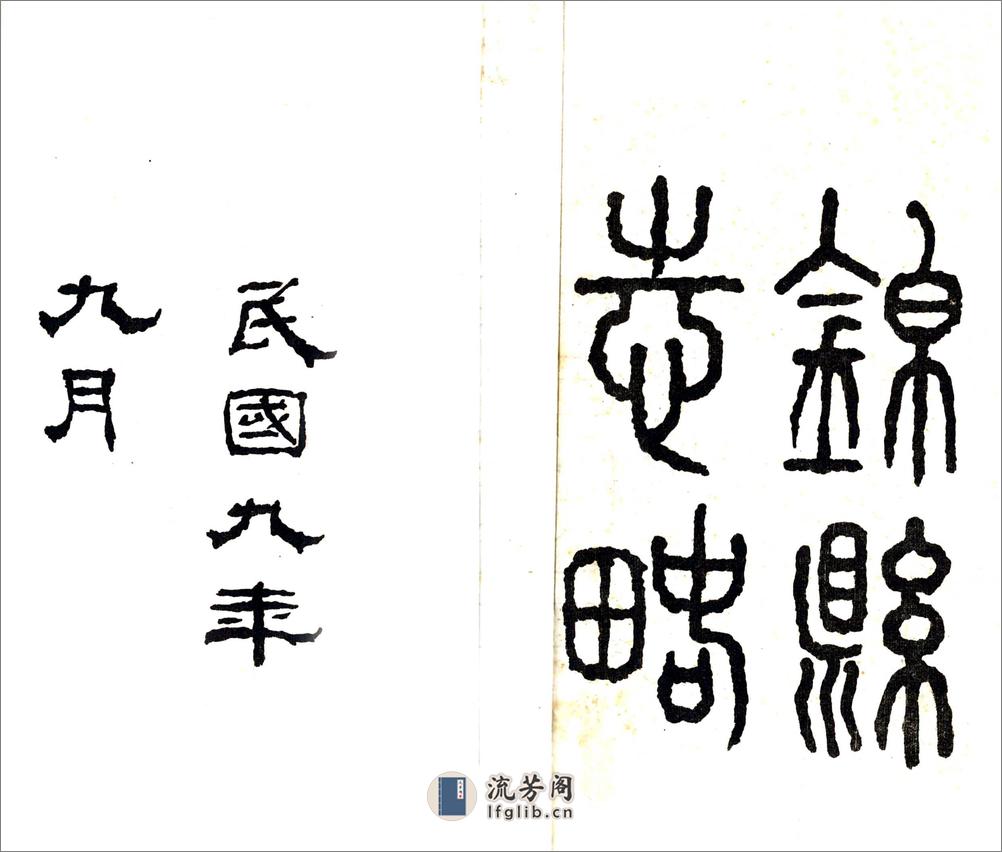 錦縣
志略
民國九年
九月
流芳阁
lfglib.cn